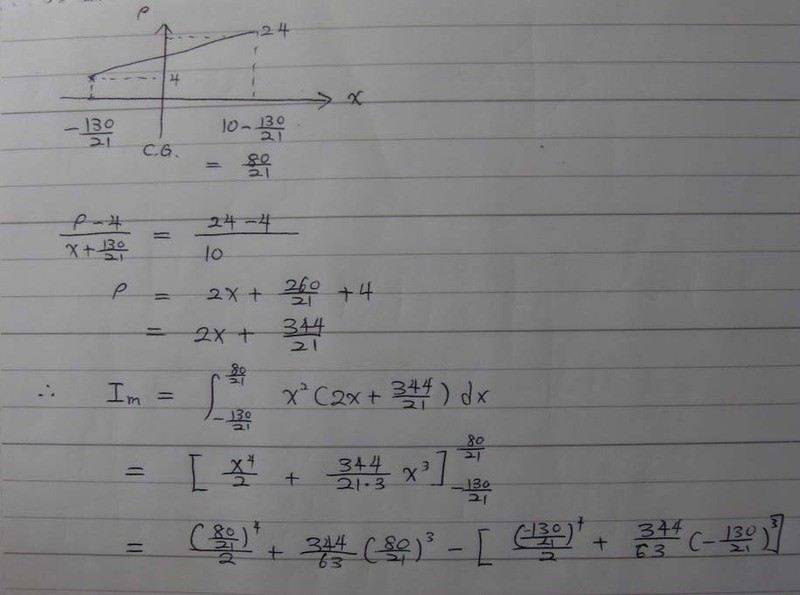 ρ
24
4
x
-130/21
10 - 130/21
C.G.
= 80/21
(ρ - 4)/(x + 130/21) = (24 - 4)/10
ρ = 2x + 260/21 + 4
= 2x + 344/21
∴ Im = ∫_{-130/21}^{80/21} x²(2x + 344/21) dx
= [x⁴/2 + 344/(21·3) x³]_{-130/21}^{80/21}
= (80/21)⁴/2 + 344/63 (80/21)³ - [(-130/21)⁴/2 + 344/63 (-130/21)³]